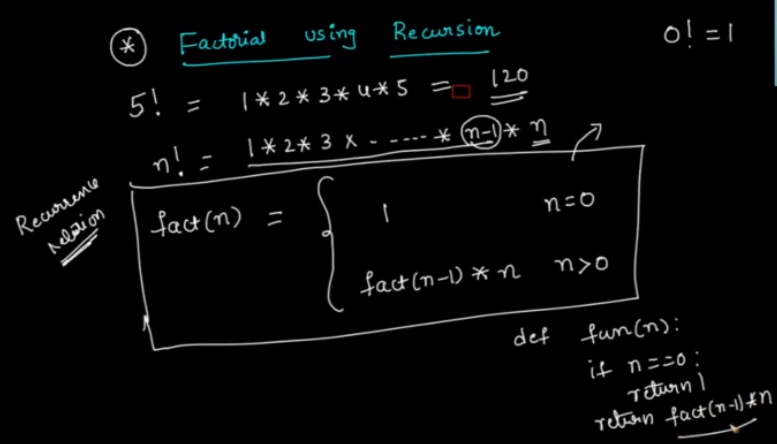 * Factorial using Recursion
0! = 1
5! = 1 * 2 * 3 * 4 * 5 = 120
n! = 1 * 2 * 3 x - ----- * (n-1) * n
Recurrence
relation
fact(n) = { 1 n=0
fact(n-1) * n n>0
def fun(n):
if n==0:
return 1
return fact(n-1)*n